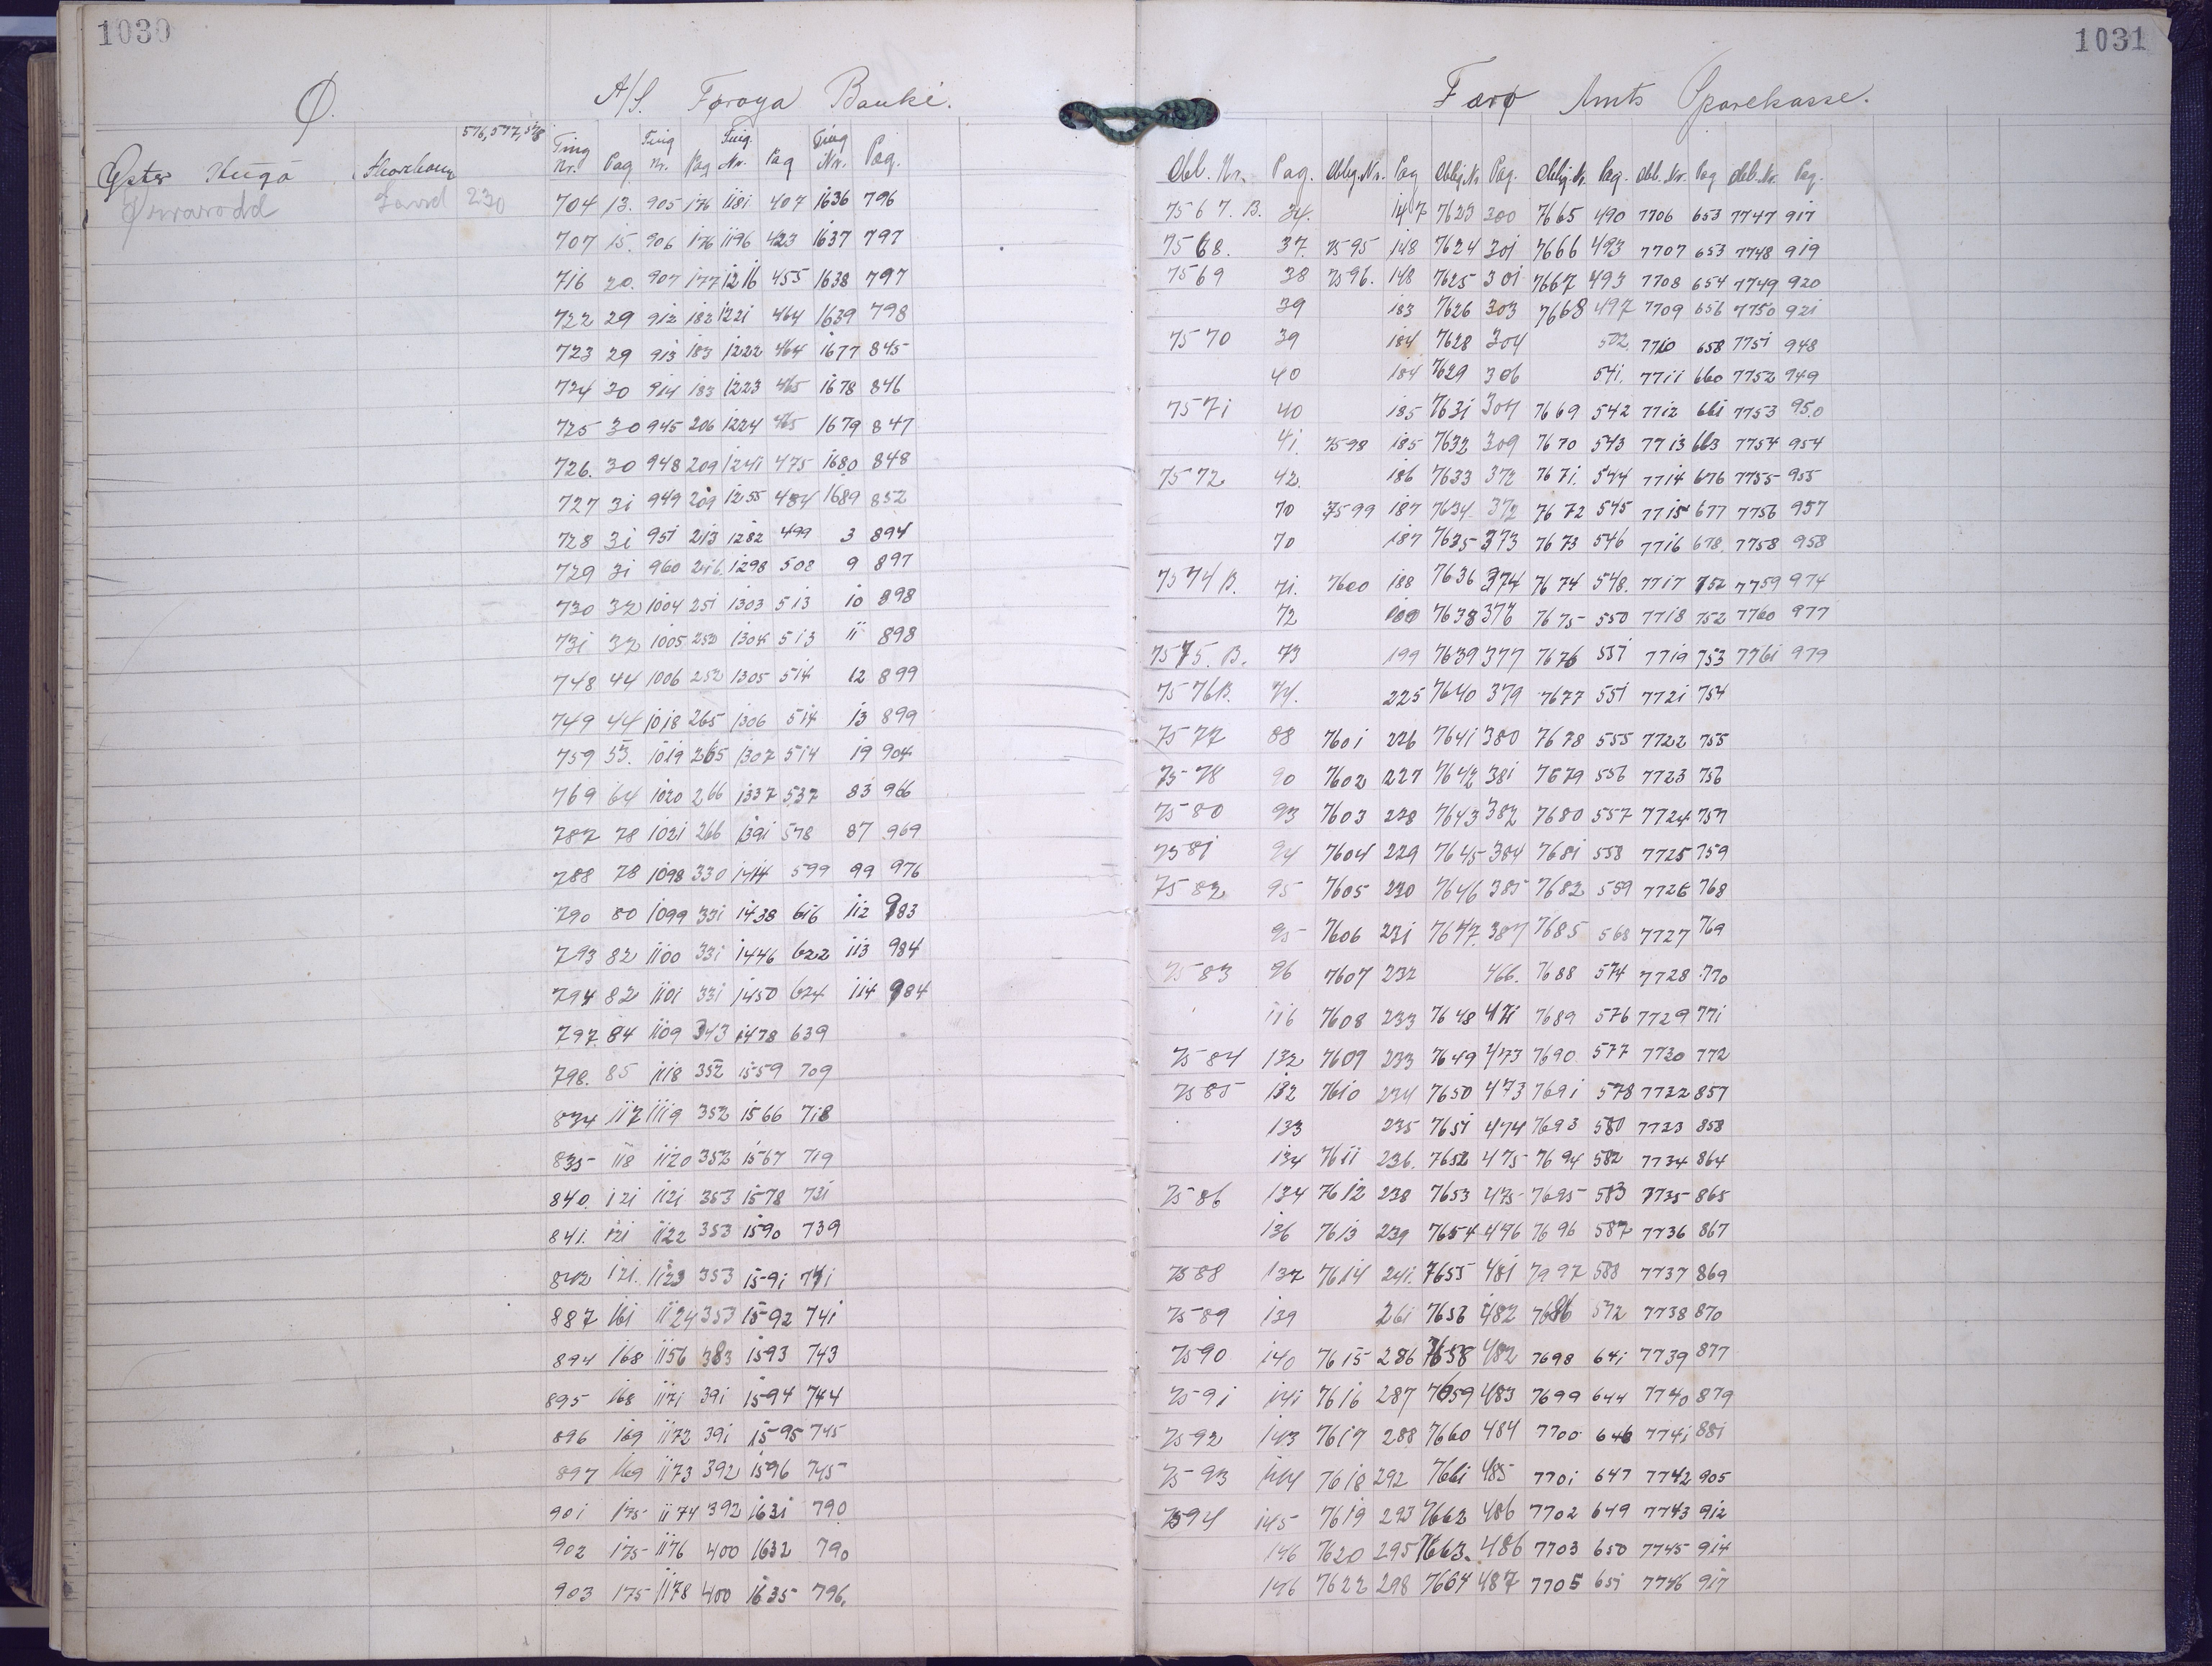 1030
Ø. A/S. Føroya Banki.
576, 577, 578
Øster Hugo Thorshavn
Gaard 230
Ting Nr. Pag Ting Nr. Pag Ting Nr. Pag Ting Nr. Pag.
704 13. 905 176 1181 407 1636 796
707 15. 906 176 1196 423 1637 797
716 20. 907 177 1216 455 1638 797
722 29 912 182 1221 464 1639 798
723 29 913 183 1222 464 1677 845
724 30 914 183 1223 465 1678 846
725 30 945 206 1224 465 1679 847
726. 30 948 209 1241 475 1680 848
727 31 949 209 1255 484 1689 852
728 31 951 213 1282 499 3 894
729 31 960 216. 1298 502 9 897
730 32 1004 251 1303 513 10 898
731 32 1005 252 1304 513 11 898
748 44 1006 252 1305 514 12 899
749 44 1018 265 1306 514 13 899
759 53. 1019 265 1307 514 19 904
769 64 1020 266 1337 537 83 966
787 78 1021 266 1391 578 87 969
788 78 1098 330 1414 599 99 976
790 80 1099 331 1438 616 112 983
793 82 1100 331 1446 622 113 984
794 82 1101 331 1450 624 114 984
797. 84 1109 343 1478 639
798. 85 1118 352 1559 709
834 117 1119 352 1566 718
835 118 1120 352 1567 719
840. 121 1121 353 1578 731
841. 121 1122 353 1590 739
842 121. 1123 353 1591 741
887 161 1124 353 1592 741
894 168 1156 383 1593 743
895 168 1171 391 1594 744
896 169 1172 391 1595 745
897 169 1173 392 1596 745
901 175 1174 392 1631 790
902 175 1176 400 1632 790
903 175 1178 400 1635 796.
1031
Færø Amts Sparekasse.
Obl. Nr. Pag. Oblg. Nr. Pag Oblig. Nr. Pag. Oblig. Nr. Pag. Obl. Nr. Pag Obl. Nr. Pag.
7567. B. 34. 147 7623 300 7665 490 7706 653 7747 917
7568. 37. 7595 148 7624 301 7666 493 7707 653 7748 919
7569 38 7596. 148 7625 301 7667 493 7708 654 7749 920
39 183 7626 303 7668 497 7709 656 7750 921
7570 39 184 7628 304 502. 7710 658 7751 948
40 184 7629 306 541. 7711 660 7752 949
7571 40 185 7631 307 7669 542 7712 661 7753 950
41. 7598 185 7632 309 7670 543 7713 663 7754 954
7572 42. 186 7633 372 7671. 544 7714 676 7755 955
70 7599 187 7634. 372 7672 545 7715 677 7756 957
70 187 7635 373 7673 546 7716 678. 7758 958
7574 B. 71. 7600 188 7636 374 7674 548. 7717 752 7759 974
72 7638 376 7675 550 7718 752 7760 977
7575. B. 73 199 7639 377 7676 551 7719 753 7761 979
7576 B. 74. 225 7640 379 7677 551 7721 754
7577 88 7601 226 7641 380 7678 555 7722 755
7578 90 7602 227 7642 381 7679 556 7723 756
7580 93 7603 228 7643 382 7680 557 7724 757
7581 94 7604 229 7645 384 7681 558 7725 759
7582 95 7605 230 7646 385 7682 559 7726 768
95 7606 231 7647. 387 7685 568 7727 769
7583 96 7607 232 466. 7688 574 7728 770
116 7608 233 7648 471 7689 576 7729 771
7584 132 7609 233 7649 473 7690 577 7730 772
7585 132 7610 234 7650 473 7691 578 7732 857
133 235 7651 474 7693 580 7733 858
134 7611 236. 7652 475 7694 582 7734 864
7586 134 7612 238 7653 475 7695 583 7735 865
136 7613 239 7654 476 7696 587 7736 867
7588 137 7614 241. 7655 481 7997 588 7737 869
7589 139 261 7656 482 7686 592 7738 870
7590 140 7615 286 7658 482 7698 641 7739 877
7591 141 7616 287 7659 483 7699 644 7740 879
7592 143 7617 288 7660 484 7700 646 7741 881
7593 144 7618 292 7661 485 7701 647 7742 905
7594 145 7619 293 7662 486 7702 649 7743 912
146 7620 295 7663. 486 7703 650 7745 914
146 7622 298 7664 487 7705 651 7746 917